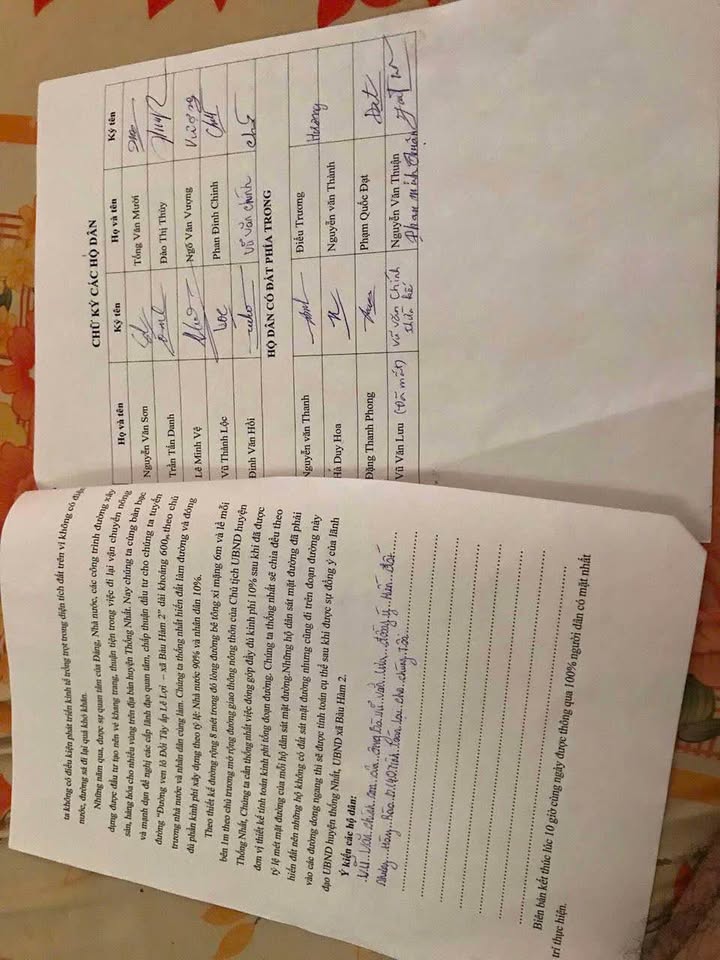 ta không có điều kiện phát triển kinh tế trồng trọt trong diện tích đất trên vì không có điện
nước, đường sá đi lại quá khó khăn.
Những năm qua, được sự quan tâm của Đảng, Nhà nước, các công trình đường xây
dựng được đầu tư tạo nên vẻ khang trang, thuận tiện trong việc đi lại vận chuyển nông
sản, hàng hóa cho nhiều vùng trên địa bàn huyện Thống Nhất. Nay chúng ta cùng bàn bạc
và mạnh dạn đề nghị các cấp lãnh đạo quan tâm, chấp thuận đầu tư cho chúng ta tuyến
đường "Đường ven lô Đồi Tây ấp Lê Lợi – xã Bàu Hàm 2" dài khoảng 600m theo chủ
trương nhà nước và nhân dân cùng làm. Chúng ta thống nhất hiến đất làm đường và đóng
đủ phần kinh phí xây dựng theo tỷ lệ: Nhà nước 90% và nhân dân 10%.
Theo thiết kế đường rộng 8 mét trong đó lòng đường bê tông xi măng 6m và lề mỗi
bên 1m theo chủ trương mở rộng đường giao thông nông thôn của Chủ tịch UBND huyện
Thống Nhất, Chúng ta cần thống nhất việc đóng góp đầy đủ kinh phí 10% sau khi đã được
đơn vị thiết kế tính toán kinh phí tổng đoạn đường. Chúng ta thống nhất sẽ chia đều theo
tỷ lệ mét mặt đường của mỗi hộ dân sát mặt đường.Những hộ dân sát mặt đường đã phải
hiến đất nên những hộ không có đất sát mặt đường nhưng cùng đi trên đoạn đường này
vào các đường dong ngang thì sẽ được tính toán cụ thể sau khi được sự đồng ý của lãnh
đạo UBND huyện thống Nhất, UBND xã Bàu Hàm 2.
Ý kiến các hộ dân:
Vũ Văn chính con của ông Bà Vũ Văn Lưu đồng ý hiến đất
Biên bản kết thúc lúc 10 giờ cùng ngày được thông qua 100% người dân có mặt nhất
trí thực hiện.
CHỮ KÝ CÁC HỘ DÂN
Họ và tên Ký tên Họ và tên Ký tên
Nguyễn Văn Sơn Tống Văn Mười
Trần Tấn Danh Đào Thị Thùy
Lê Minh Vệ Ngô Văn Vượng Vương
Vũ Thành Lộc Lộc Phan Đình Chinh
Đinh Văn Hồi Vũ Văn chính chính
HỘ DÂN CÓ ĐẤT PHÍA TRONG
Nguyễn văn Thanh Điều Trương
Hà Duy Hoa Nguyễn văn Thành
Đặng Thanh Phong Phạm Quốc Đạt Đạt
Vũ Văn Lưu (Đã mất) Vũ Văn Chính thừa kế Nguyễn Văn Thuận
Phan Minh Thuận